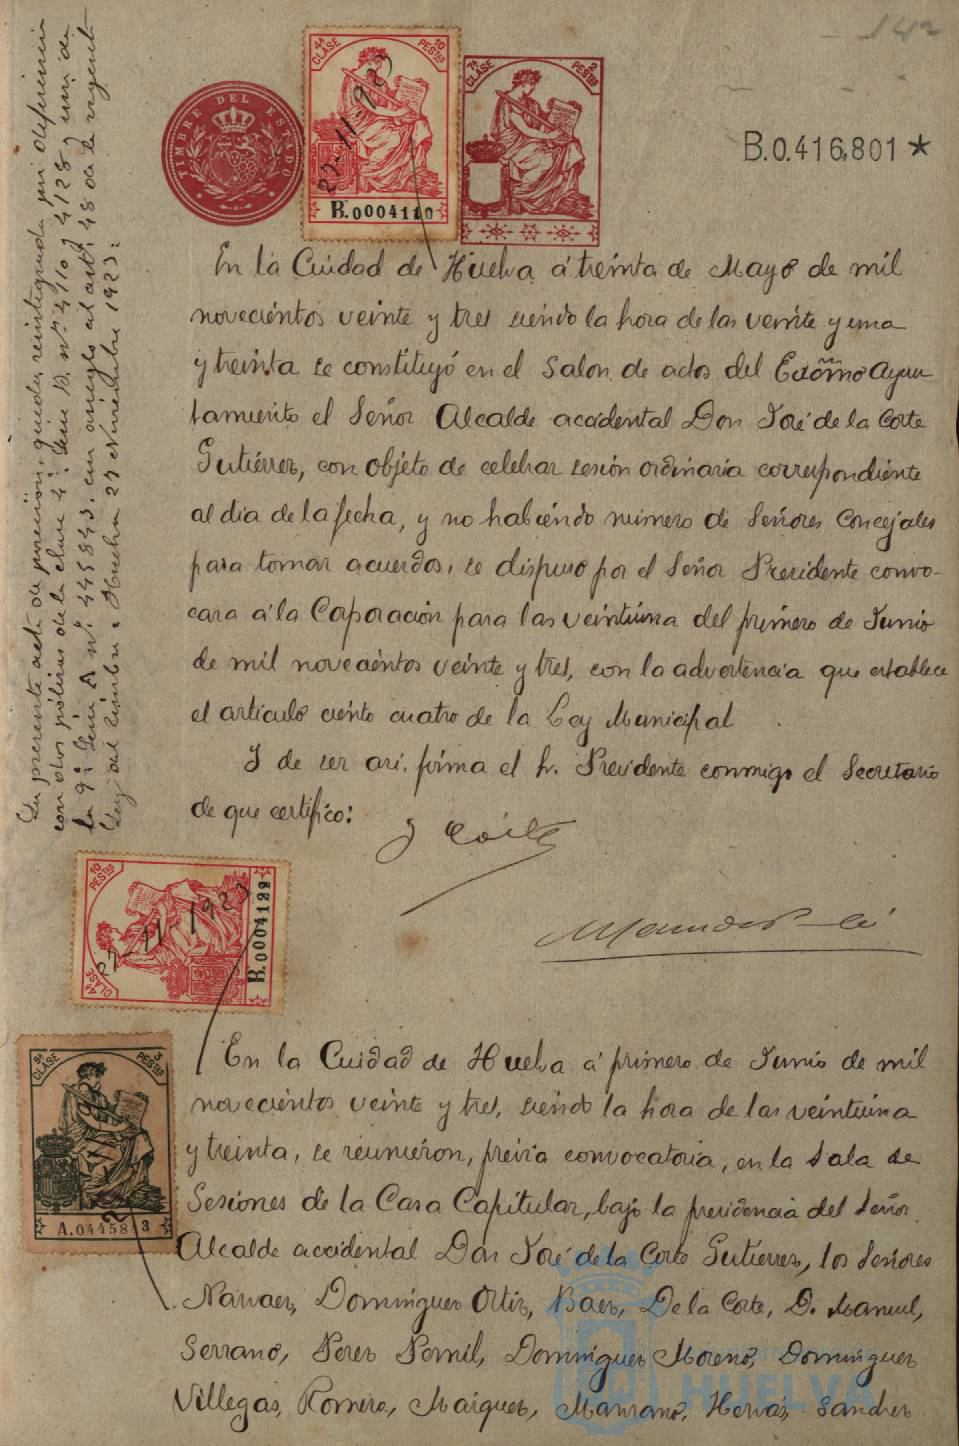 142
TIMBRE DEL ESTADO
4ª CLASE 10 PESTAS
27-11-923
B.0004110
7ª CLASE 2 PESTAS
B.0.416,801 *
La presente acta de precisión, queda reintegrada por diferencia
con dos pólizas de la clase 4ª Serie B. nº 4110 y 4128 y una de
la 9ª Serie A nº 445843, con arreglo al artº 48 de la vigente
Ley del Timbre. Huelva 27 Noviembre 1923:
En la Cuidad de Huelva á treinta de Mayo de mil
novecientos veinte y tres siendo la hora de las veinte y una
y treinta se constituyó en el Salon de actos del Excmo Ayun
tamiento el Señor Alcalde accidental Don José de la Corte
Gutiérrez, con objeto de celebrar sesión ordinaria correspondiente
al dia de la fecha, y no habiendo número de Señores Concejales
para tomar acuerdos, se dispuso por el Señor Presidente convo-
cara á la Coporación para las veintiuna del primero de Junio
de mil novecientos veinte y tres, con la advertencia que establece
el articulo ciento cuatro de la Ley Municipal.
Y de ser asi, firma el Sr. Presidente conmigo el Secretario
de que certifico:
J Corte
4ª CLASE 10 PESTAS
27-11-1923
B.0004122
9ª CLASE 3 PESTAS
A.0445843
En la Cuidad de Huelva á primero de Junio de mil
novecientos veinte y tres, siendo la hora de las veintiuna
y treinta, se reunieron, previa convocatoria, en la Sala de
Sesiones de la Casa Capitular, bajo la presidencia del Señor
Alcalde accidental Don José de la Corte Gutierrez, los Señores
Narvaez, Dominguez Ortiz, Baez, De la Corte, D. Manuel,
Serrano, Perez Pernil, Dominguez Moreno, Dominguez
Villegas, Romero, Márquez, Manzano, Hervás, Sanchez
HUELVA